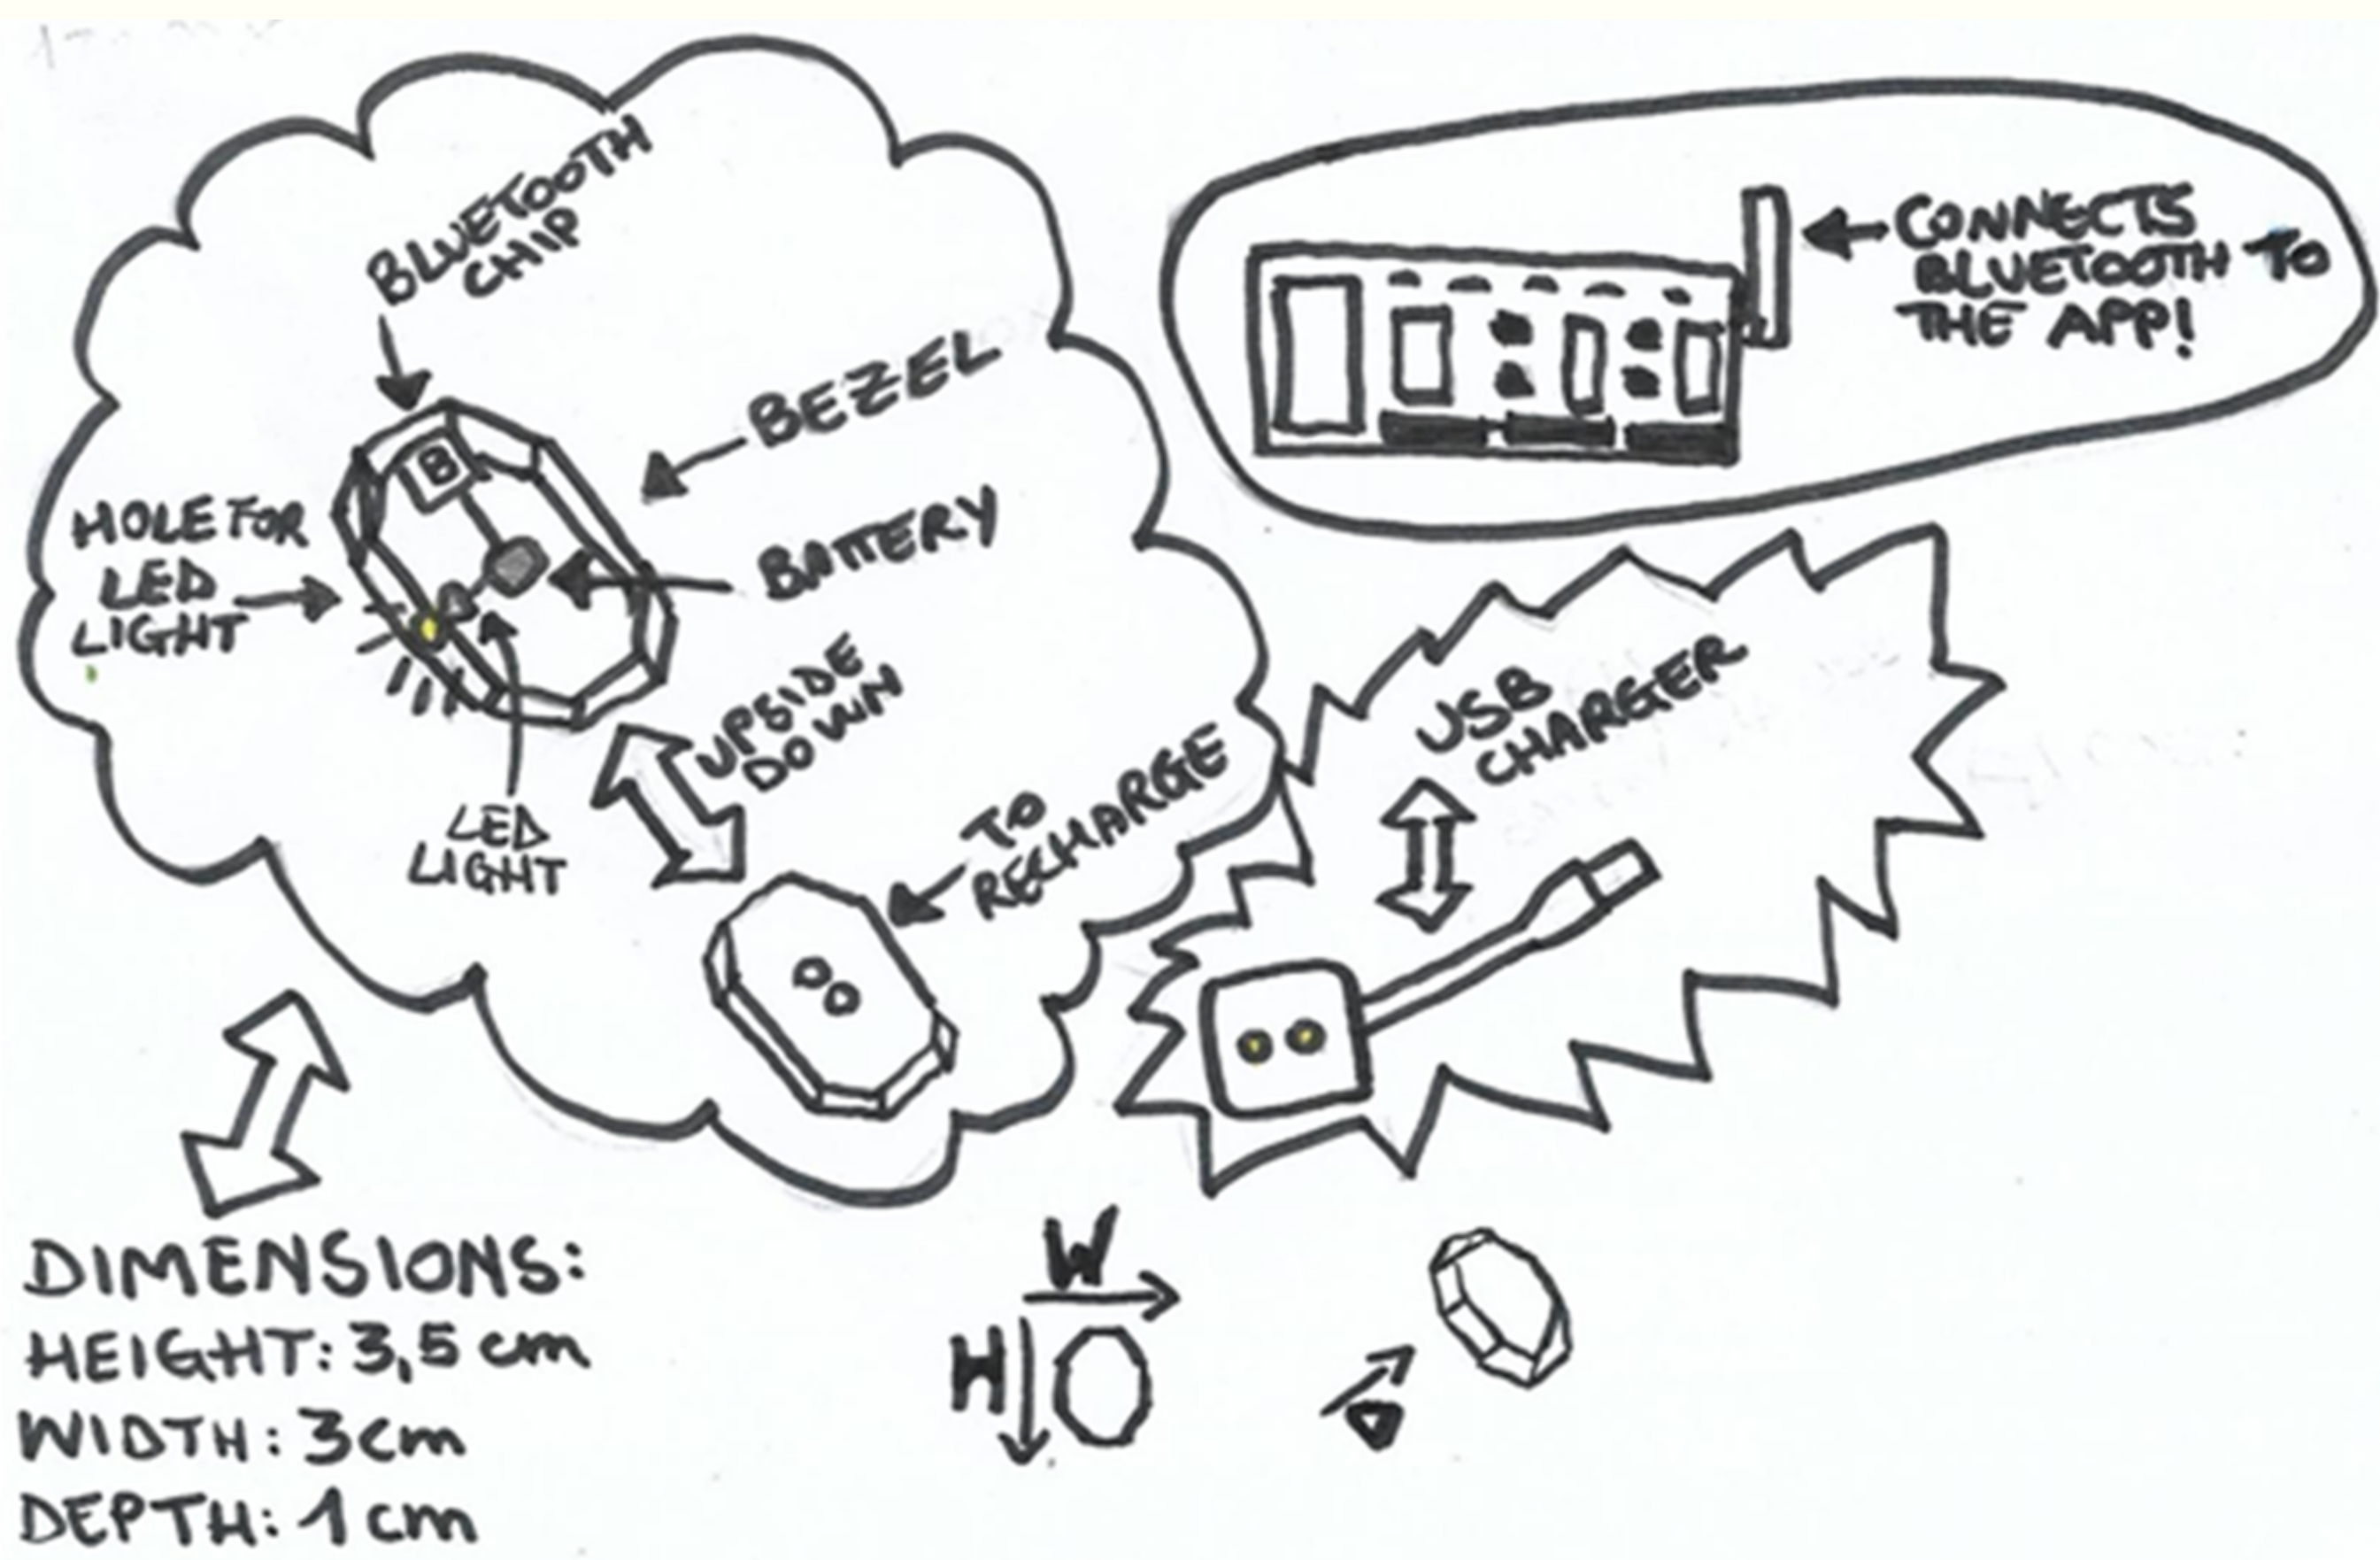 BLUETOOTH
CHIP
BEZEL
HOLE FOR
LED
LIGHT
B
BATTERY
UPSIDE
DOWN
LED
LIGHT
TO
RECHARGE
CONNECTS
BLUETOOTH TO
THE APP!
USB
CHARGER
DIMENSIONS:
HEIGHT: 3,5 cm
WIDTH: 3cm
DEPTH: 1cm
W
H
D